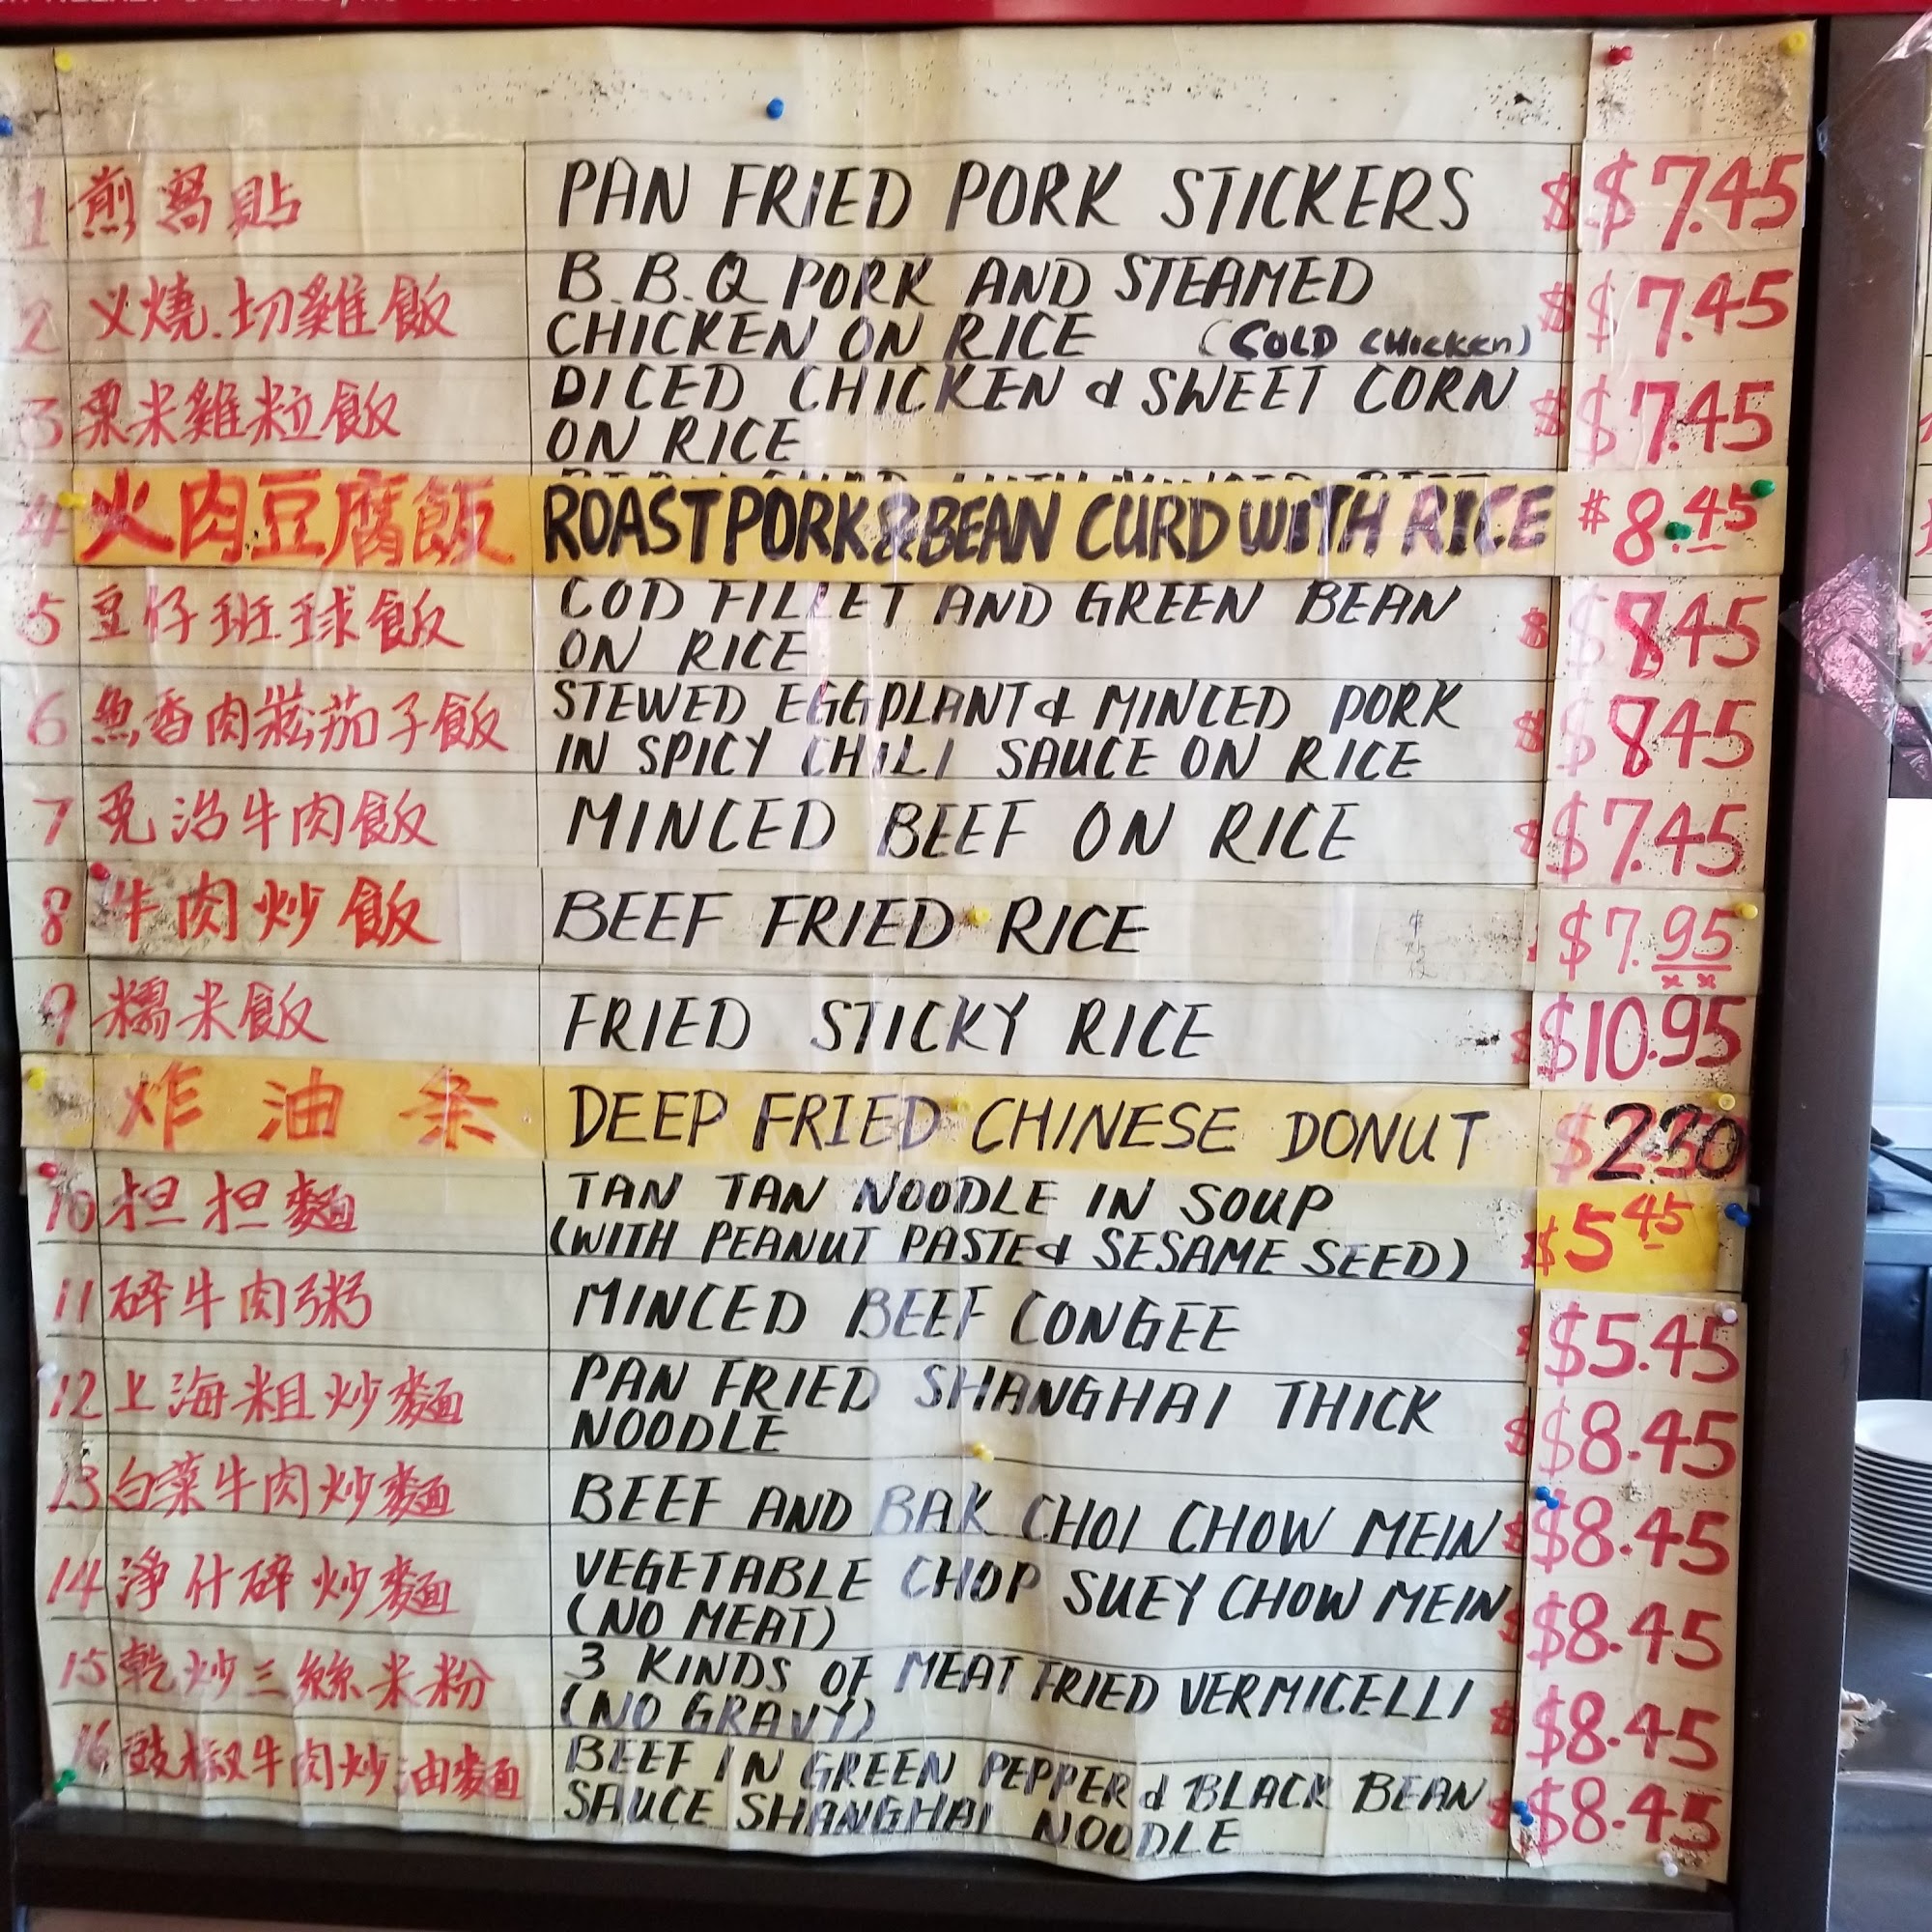 1 煎窩貼 PAN FRIED PORK STICKERS $ $7.45
2 叉燒.切雞飯 B.B.Q PORK AND STEAMED $ $7.45
CHICKEN ON RICE (COLD CHICKEN)
3 粟米雞粒飯 DICED CHICKEN & SWEET CORN $ $7.45
ON RICE
4 火肉豆腐飯 ROAST PORK & BEAN CURD WITH RICE $8.45
5 豆仔班球飯 COD FILLET AND GREEN BEAN $ $8.45
ON RICE
6 魚香肉菘茄子飯 STEWED EGGPLANT & MINCED PORK $ $8.45
IN SPICY CHILI SAUCE ON RICE
7 免治牛肉飯 MINCED BEEF ON RICE $ $7.45
8 牛肉炒飯 BEEF FRIED RICE $7.95
9 糯米飯 FRIED STICKY RICE $ $10.95
炸油条 DEEP FRIED CHINESE DONUT $2.30
10 担担麵 TAN TAN NOODLE IN SOUP $5.45
(WITH PEANUT PASTE & SESAME SEED)
11 碎牛肉粥 MINCED BEEF CONGEE $ $5.45
12 上海粗炒麵 PAN FRIED SHANGHAI THICK $ $8.45
NOODLE
13 白菜牛肉炒麵 BEEF AND BAK CHOI CHOW MEIN $ $8.45
14 淨什碎炒麵 VEGETABLE CHOP SUEY CHOW MEIN $ $8.45
(NO MEAT)
15 乾炒三絲米粉 3 KINDS OF MEAT FRIED VERMICELLI $ $8.45
(NO GRAVY)
16 豉椒牛肉炒油麵 BEEF IN GREEN PEPPER & BLACK BEAN $ $8.45
SAUCE SHANGHAI NOODLE